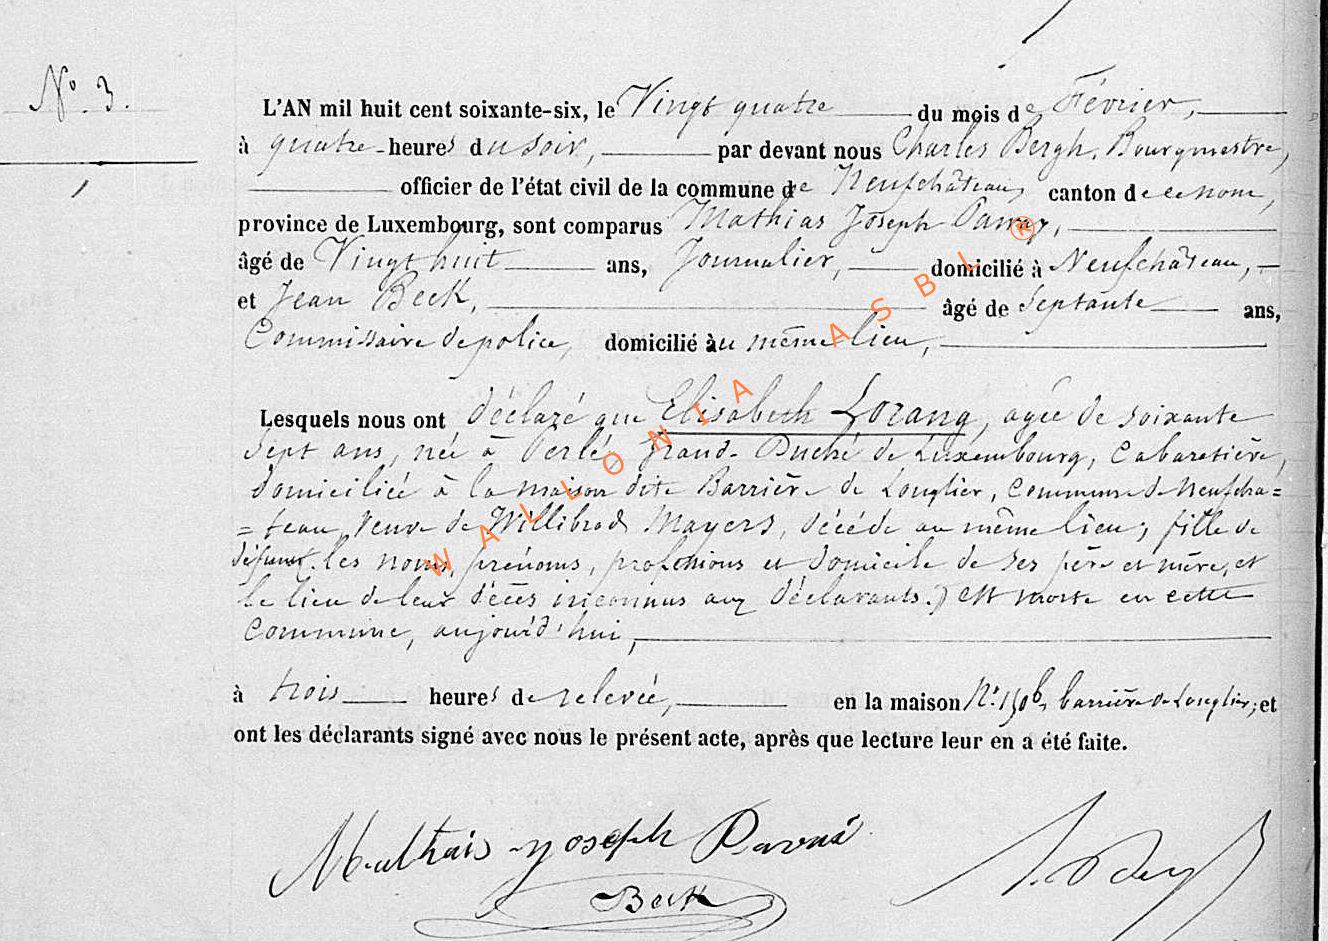 N° 3.
L'AN mil huit cent soixante-six, le Vingt quatre du mois de Février,
à quatre heures du soir, par devant nous Charles Bergh, Bourgmestre,
officier de l'état civil de la commune de Neufchâteau, canton de ce nom,
province de Luxembourg, sont comparus Mathias Joseph
âgé de Vingt huit ans, Journalier, domicilié à Neufchâteau,
et Jean Beck, âgé de Septante ans,
Commissaire de police, domicilié au même lieu,
Lesquels nous ont déclaré que Elisabeth Lorang, agée de soixante
sept ans, née à Perlé, grand-Duché de Luxembourg, Cabaretière,
domiciliée à la maison dite Barrière de Longlier, Commune de Neufcha=
=teau, Veuve de Willibrod Mayers, décédé au même lieu; fille de
défunt. les noms, prénoms, professions et domicile de ses père et mère, et
le lieu de leur décès inconnus aux déclarants.) est morte en cette
commune, aujourd'hui,
à trois heures de relevée, en la maison N° 150b, barrière de Longlier; et
ont les déclarants signé avec nous le présent acte, après que lecture leur en a été faite.
Mathais Joseph
Beck
WALLONIA ASBL ®